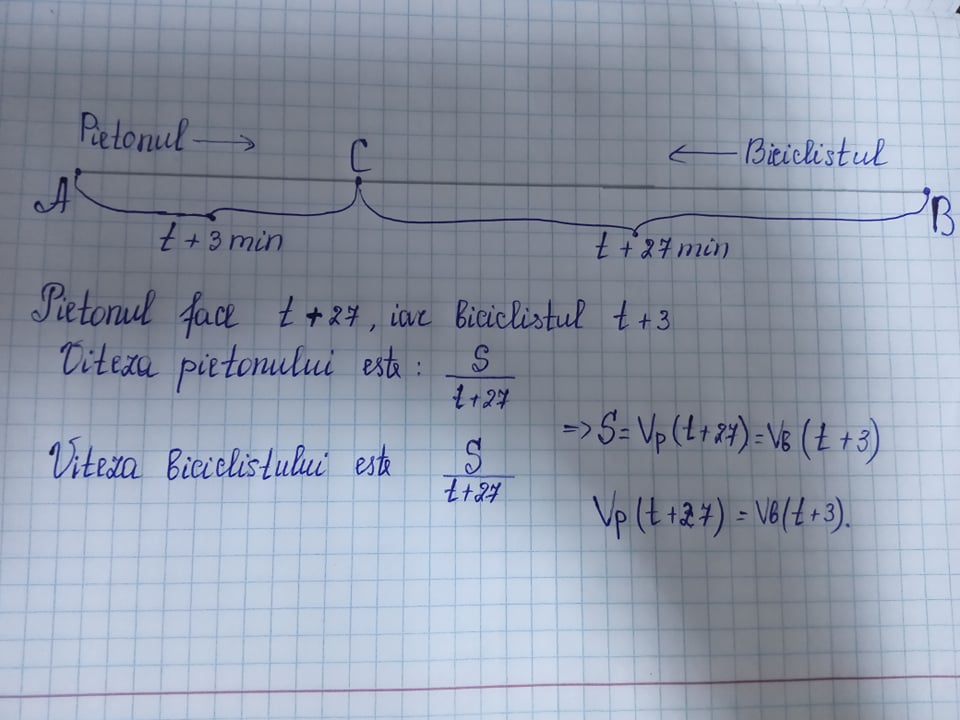 Pietonul →
C
← Biciclistul
A
B
t + 3 min
t + 27 min
Pietonul face t + 27, iar biciclistul t + 3
Viteza pietonului este: S / t+27
=> S = Vp (t+27) = VB (t+3)
Viteza biciclistului este S / t+27
Vp (t+27) = VB (t+3).